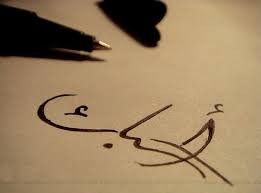 أحبك